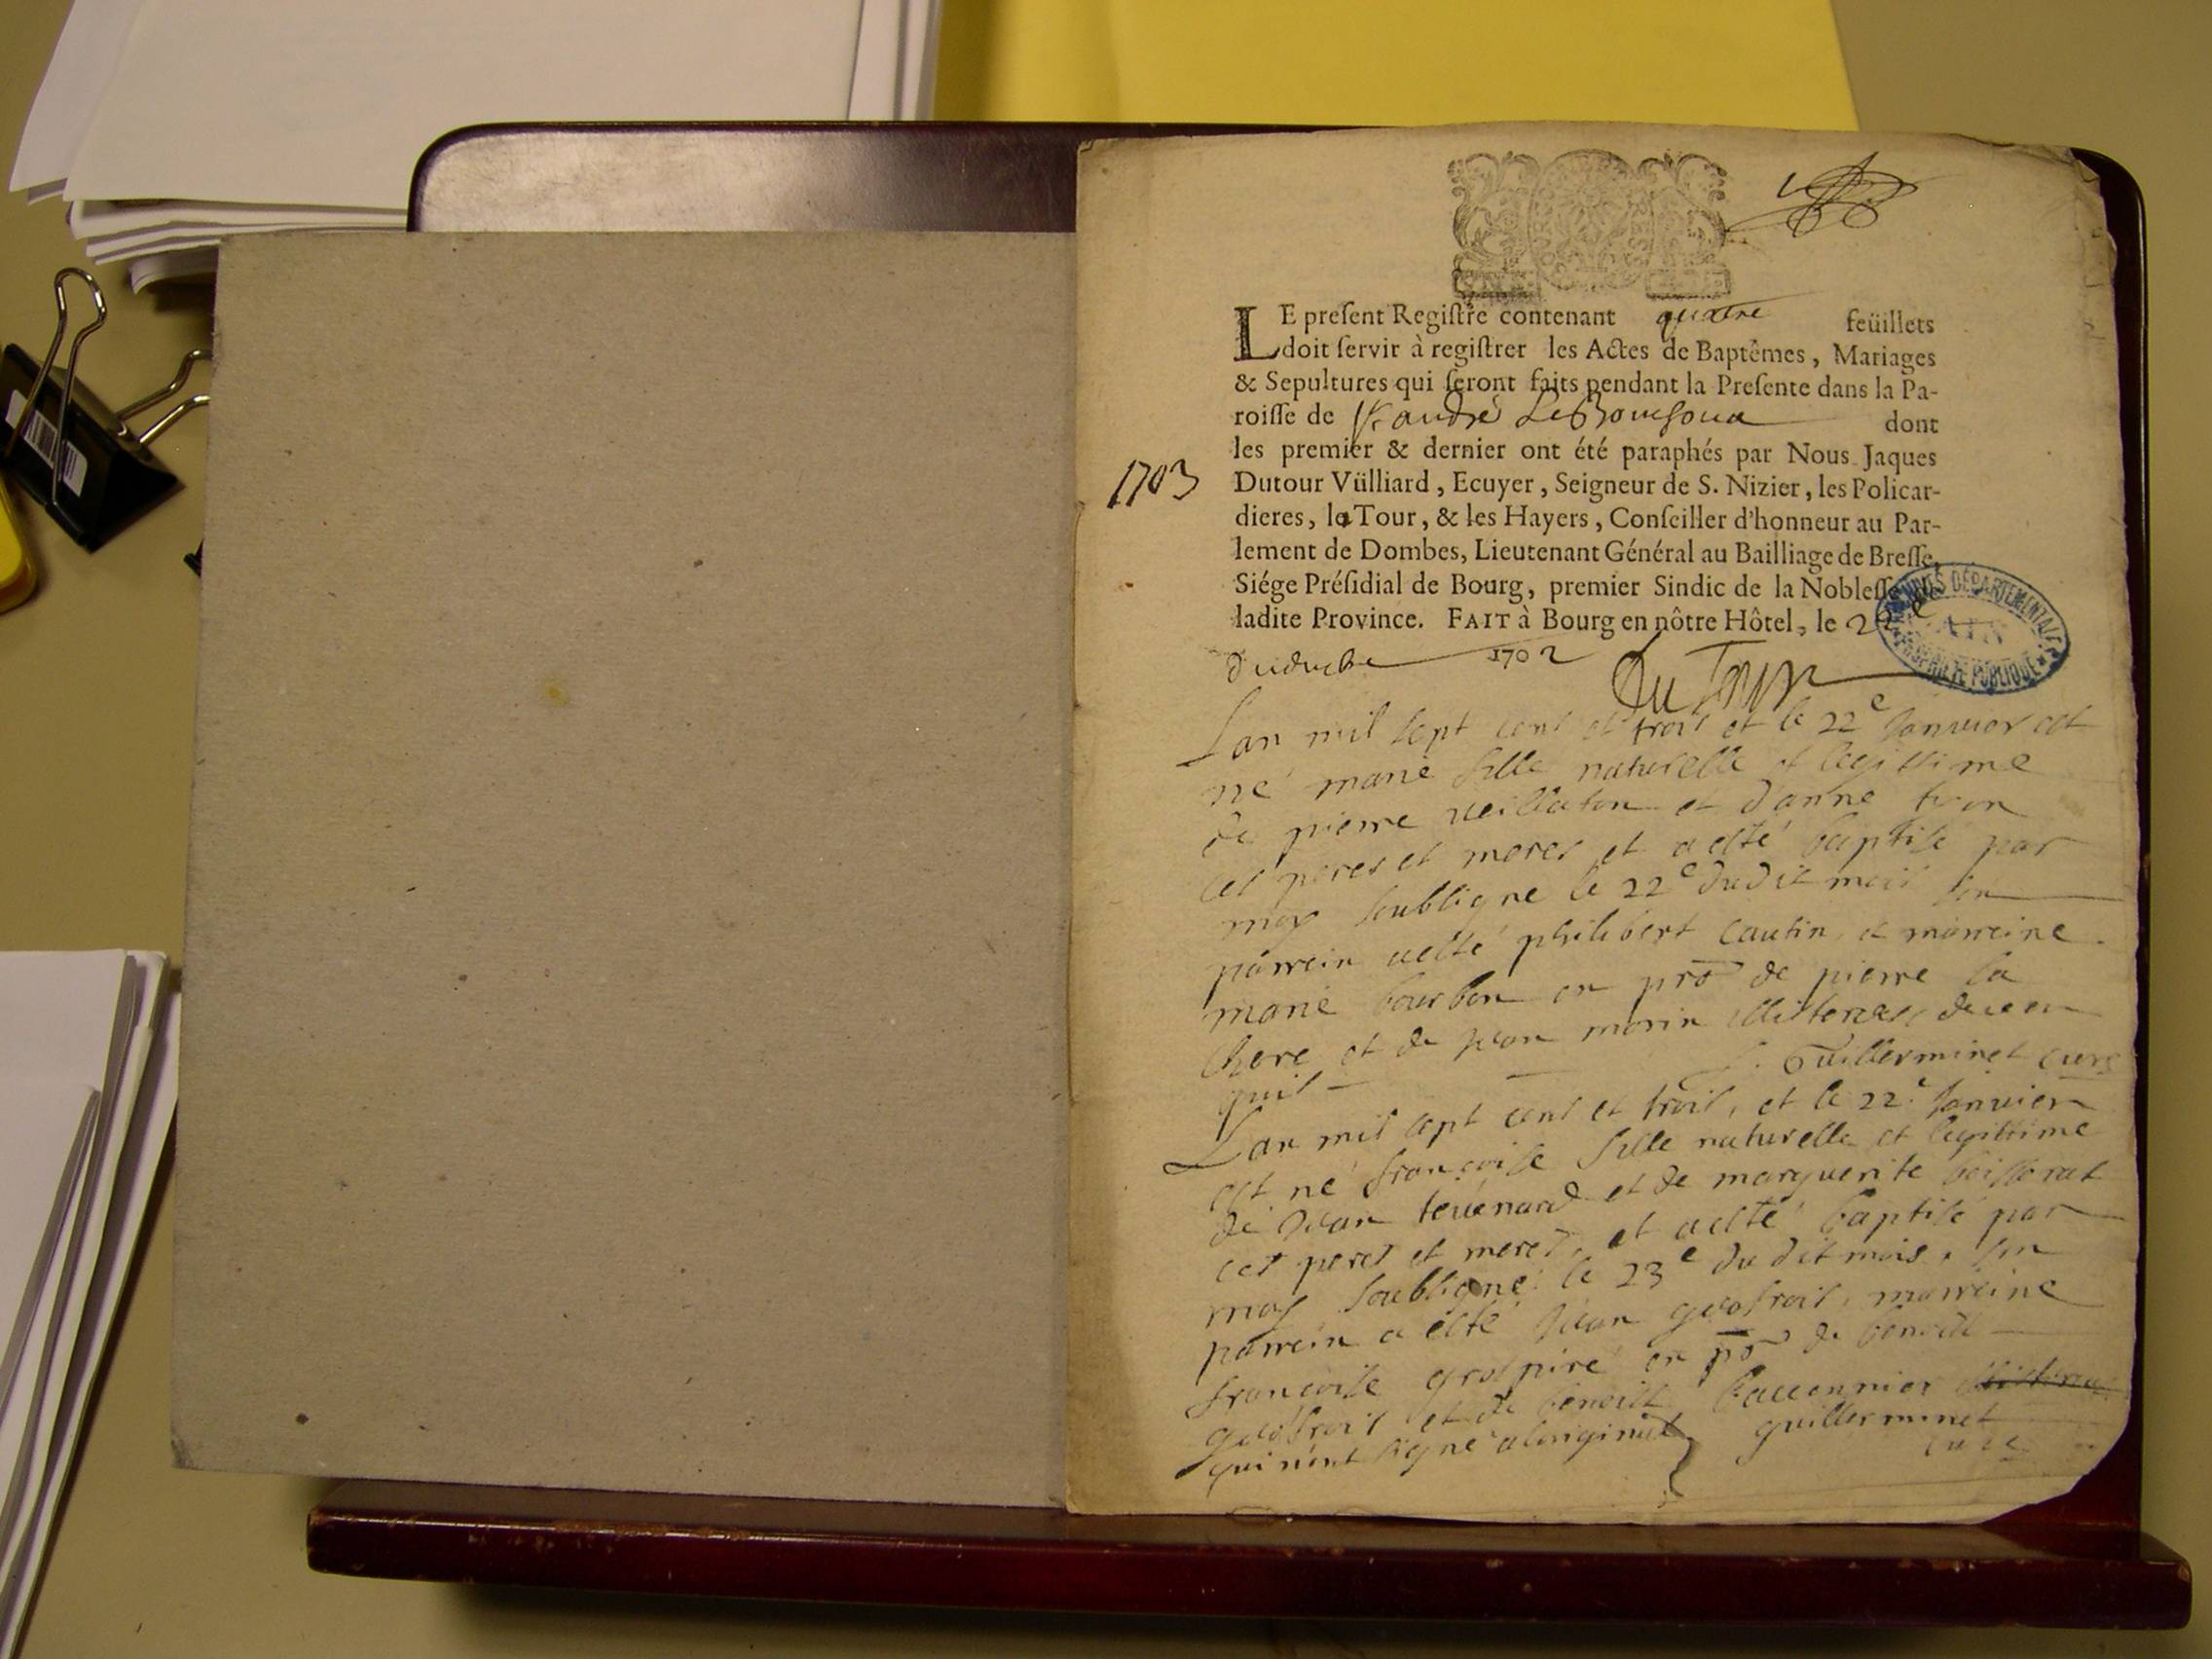 LE preſent Regiſtre contenant quatre feüillets
doit ſervir à regiſtrer les Actes de Baptêmes, Mariages
& Sepultures qui ſeront faits pendant la Preſente dans la Pa-
roiſſe de St André dont
les premier & dernier ont été paraphés par Nous Jaques
1703
Dutour Vülliard, Ecuyer, Seigneur de S. Nizier, les Policar-
dieres, la Tour, & les Hayers, Conſeiller d'honneur au Par-
lement de Dombes, Lieutenant Général au Bailliage de Breſſe,
Siége Préſidial de Bourg, premier Sindic de la Nobleſſe
ladite Province. FAIT à Bourg en nôtre Hôtel, le 22e
1702 Du Tour
ARCHIVES DÉPARTEMENTALES
AIN
PROPRIÉTÉ PUBLIQUE
Lan mil sept cent et trois et le 22e Janvier est
né marie fille naturelle et legittime
de pierre et danne
ces peres et meres et a esté baptisé par
moy soubsigne le 22e du dit mois son
parrein a esté philibert cautin et marreine
marie bourbon en pro de pierre la
et de Jean morin
quis Guillerminet curé
Lan mil sept cent et trois, et le 22e Janvier
est né françoise fille naturelle et legittime
de Jean tevenard et de marguerite
ces peres et meres, et a esté baptisé par
moy soubsigné le 23e du dit mois, son
parrein a esté Jean geofrois, marreine
françoise grospiré en pro de benoist
geofrois et de benoist
qui nont signé a loriginal guillerminet
curé